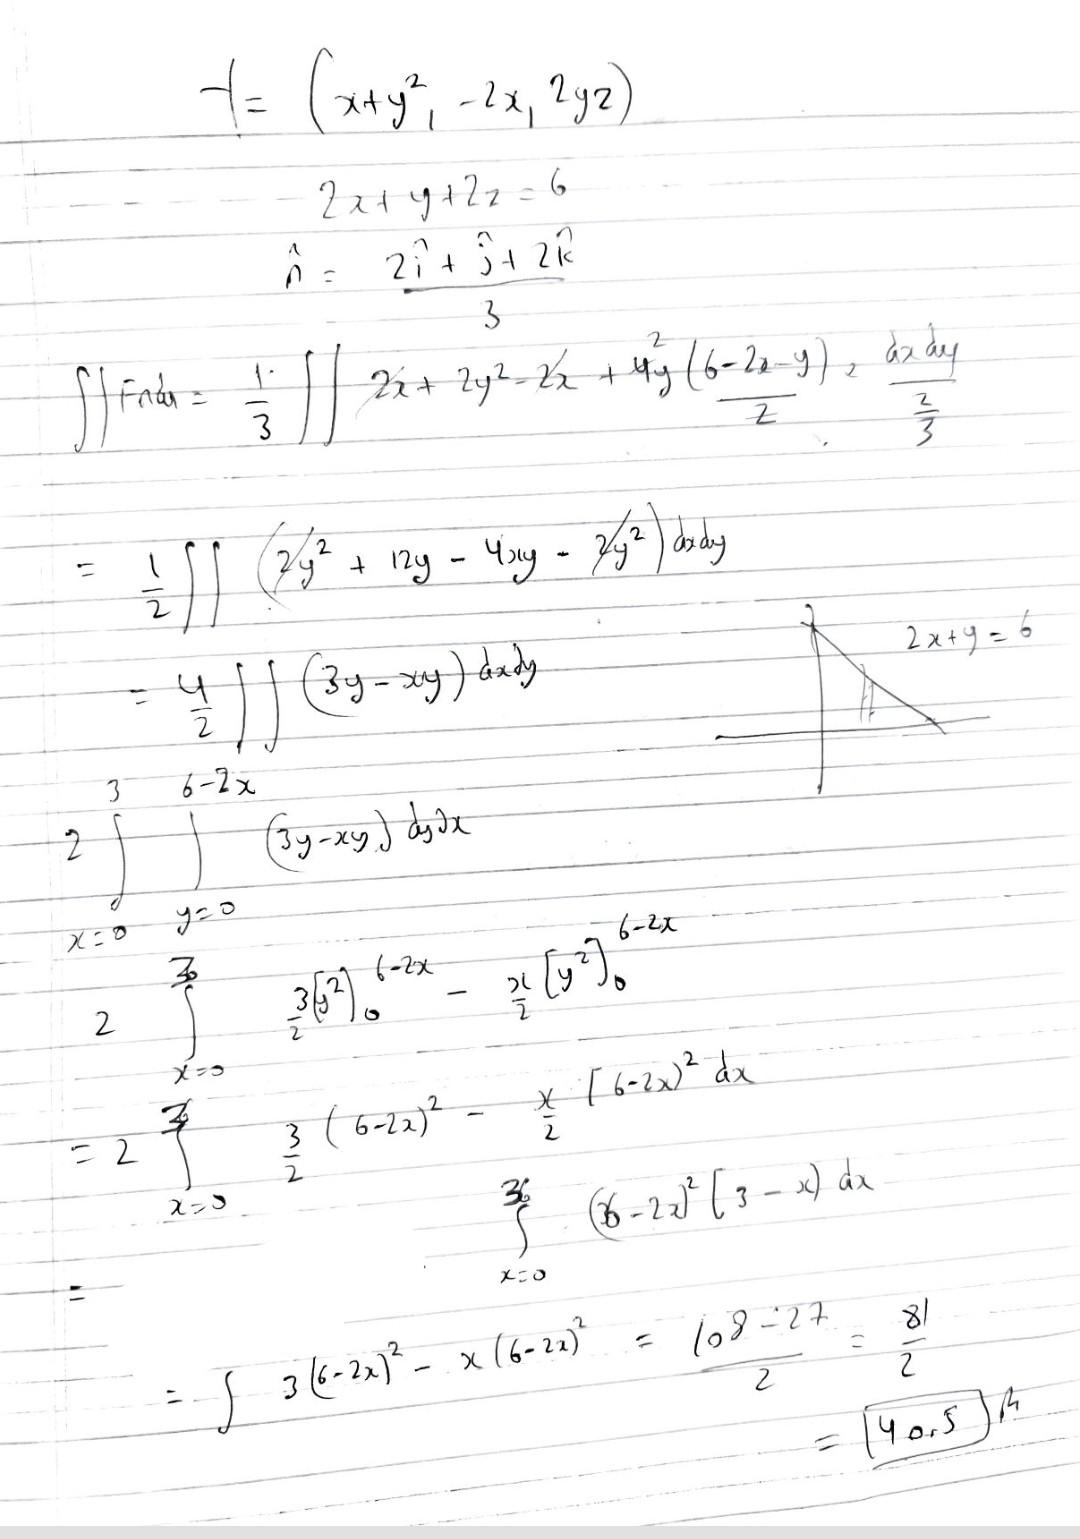 f = (x+y², -2x, 2yz)
2x+y+2z=6
n̂ = (2î + ĵ + 2k̂)/3
∬Fnds = 1/3 ∬ 2x + 2y² - 2x + 4y (6-2x-y)/2 , dxdy/(2/3)
= 1/2 ∬ (2y² + 12y - 4xy - 2y²) dxdy
2x+y=6
= 4/2 ∬ (3y-xy) dxdy
2 ∫_{x=0}^{3} ∫_{y=0}^{6-2x} (3y-xy) dydx
2 ∫_{x=0}^{3} 3/2 [y²]_0^{6-2x} - x/2 [y²]_0^{6-2x}
= 2 ∫_{x=0}^{3} 3/2 (6-2x)² - x/2 (6-2x)² dx
= ∫_{x=0}^{3} (6-2x)² (3-x) dx
= ∫ 3(6-2x)² - x(6-2x)² = (108-27)/2 = 81/2
= 40.5